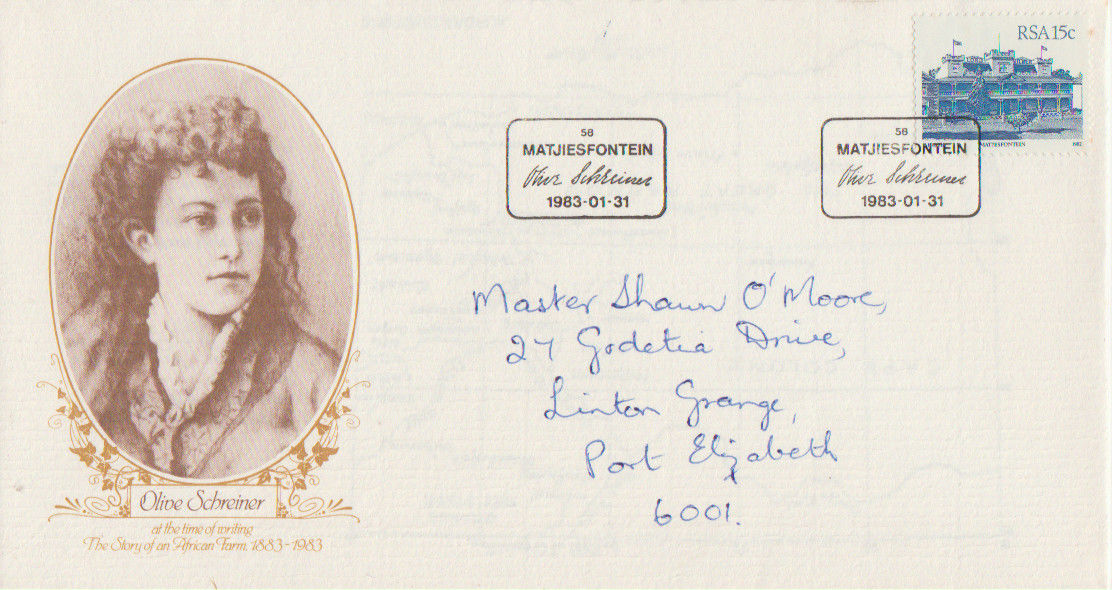 RSA 15c
MATJIESFONTEIN
1982
58
MATJIESFONTEIN
Olive Schreiner
1983-01-31
58
MATJIESFONTEIN
Olive Schreiner
1983-01-31
Master Shawn O'Moore,
27 Godetia Drive,
Linton Grange,
Port Elizabeth
6001.
Olive Schreiner
at the time of writing
The Story of an African Farm, 1883-1983